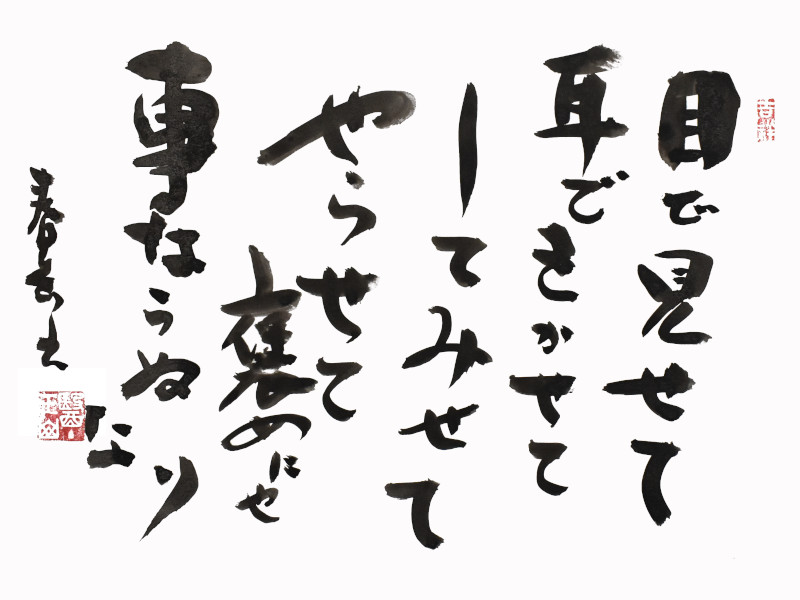 吉祥
目で見せて
耳できかせて
してみせて
やらせて
褒めにや
事ならぬ
なり